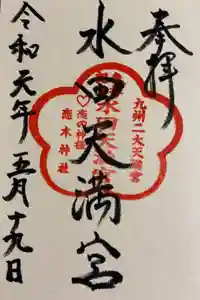 奉拝
九州二大天満宮
水田天満宮
♡恋の神様
恋木神社
令和元年 五月十九日